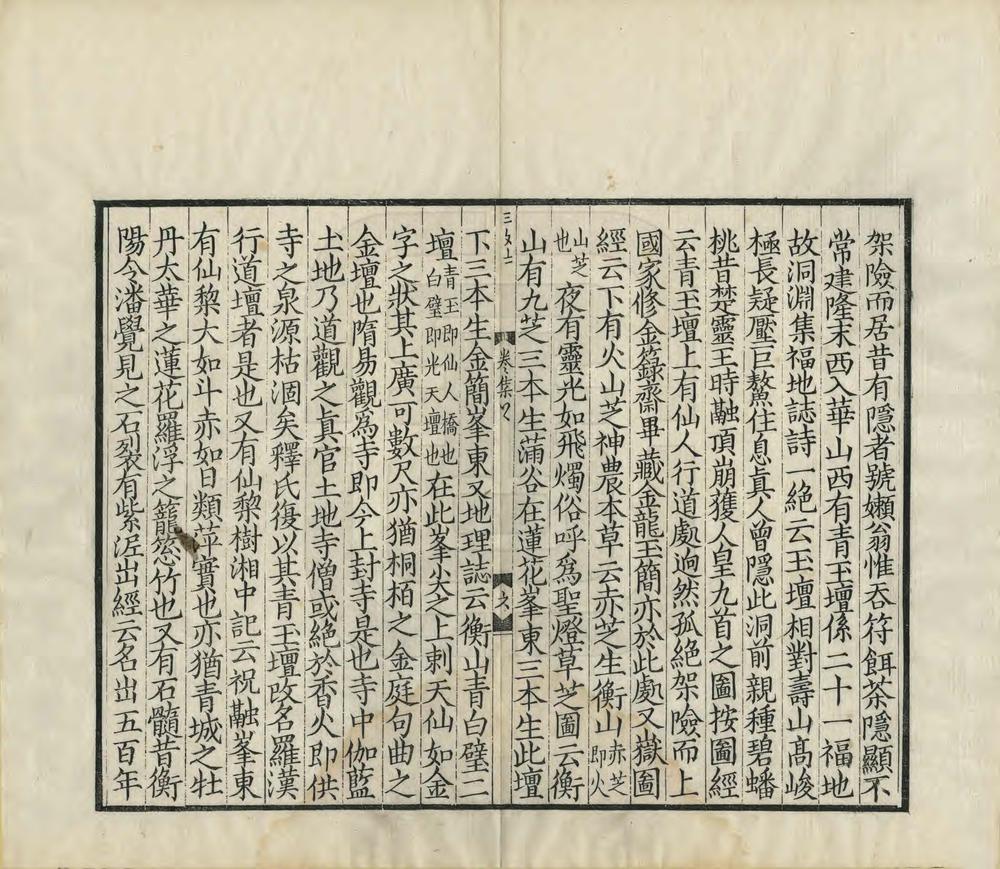 架險而居昔有隱者號嬾翁惟吞符餌茶隱顯不
常建隆末西入華山西有青玉壇係二十一福地
故洞淵集福地誌詩一絶云玉壇相對壽山髙峻
極長疑壓巨鰲住息真人曾隱此洞前親種碧蟠
桃昔楚靈王時融頂崩獲人皇九首之圖按圖經
云青玉壇上有仙人行道處逈然孤絶架險而上
國家修金籙齋畢藏金龍玉簡亦於此處又嶽圖
經云下有火山芝神農本草云赤芝生衡山赤芝即火
山芝也夜有靈光如飛燭俗呼爲聖燈草芝圖云衡
山有九芝三本生蒲谷在蓮花峯東三本生此壇
卷集
下三本生金簡峯東又地理誌云衡山青白璧二
壇青玉即仙人橋也白璧即光天壇也在此峯尖之上刺天仙如金
字之狀其上廣可數尺亦猶桐栢之金庭句曲之
金壇也隋易觀爲寺即今上封寺是也寺中伽藍
土地乃道觀之真官土地寺僧或絶於香火即供
寺之泉源枯涸矣釋氏復以其青玉壇改名羅漢
行道壇者是也又有仙黎樹湘中記云祝融峯東
有仙黎大如斗赤如日類萍實也亦猶青城之牡
丹太華之蓮花羅浮之籠𥮉竹也又有石髓昔衡
陽令潘覺見之石裂有紫泥出經云名出五百年